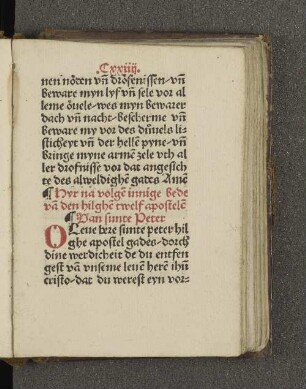 Cxxiiij.
nen nöten vn̄ dröfenissen· vn̄
beware myn lyf vn̄ sele vor al
leme öuele· wes myn bewarer
dach vn̄ nacht· bescherme vn̄
beware my vor des düuels li-
sticheyt vn̄ der hellen̄ pyne· vn̄
bringe myne armē zele vth al
ler drofnisse vor dat angesich
te des alweldighē gades Amē
¶ Hyr na volgē innige bede
vā den hilghē twelf apostelē
¶ Van sunte Peter
O Leue here sunte peter hil
ghe apostel gades· dorch
dine werdicheit de du entfen
gest vā vnseme leuē herē ihū
cristo· dat du werest eyn vor-